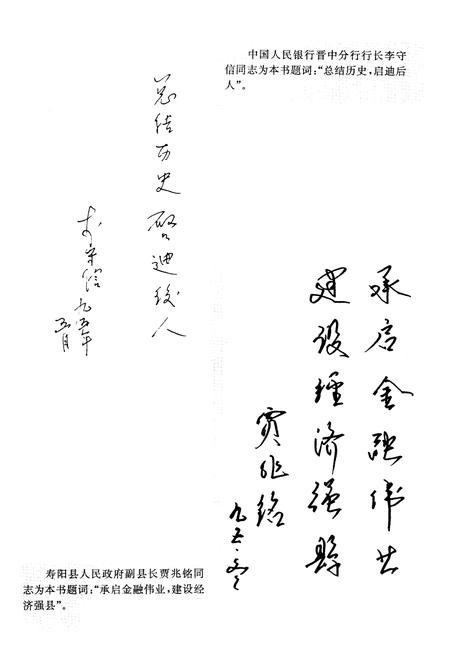 中国人民银行晋中分行行长李守
信同志为本书题词：“总结历史，启迪后
人”。
总结历史 启迪后人
李守信 九五年
五月
承启金融伟业
建设经济强县
贾兆铭
九五·
寿阳县人民政府副县长贾兆铭同
志为本书题词：“承启金融伟业，建设经
济强县”。